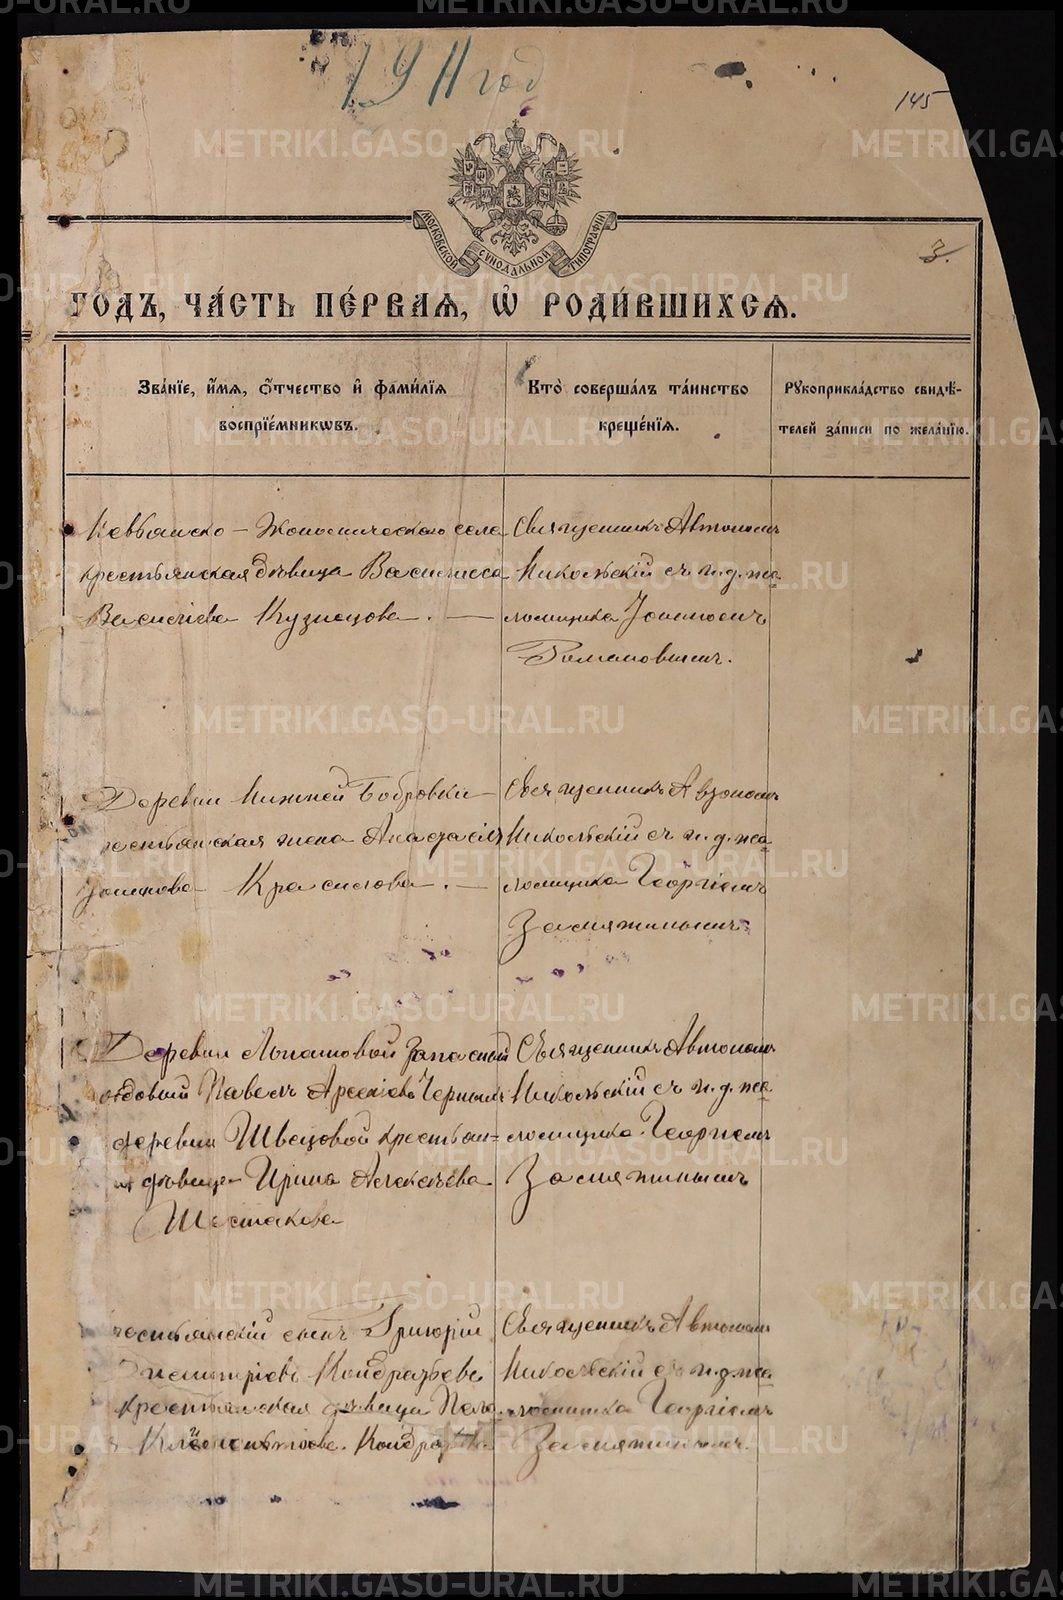 1911 год
145
МОСКОВСКОЙ СИНОДАЛЬНОЙ ТИПОГРАФІИ
3.
ГОДЪ, ЧА́СТЬ ПЕ́РВАЯ, Ѡ҆ РОДИ́ВШИХСЯ.
Зва́нїе, и҆́мя, ѻ҆́тчество и҆ фами́лїя
воспрїе́мникѡвъ.
Кто̀ соверша́лъ та́инство
креще́нїя.
Рꙋкоприкла́дство свидѣ́-
телей за́писи по жела́нїю.
Невьянско - Экономическаго села
крестьянская дѣвица Васисса
Васильева Кузнецова. —
Священникъ Автономъ
Никольскій съ и. д. пса
ломщика Іоанномъ
Романовымъ.
Деревни Нижней Бобровки
крестьянская жена Анастасія
Красилова. —
Священникъ Автономъ
Никольскій съ и. д. пса
ломщика Георгіемъ
Замятинымъ.
Деревни Лопатовой запасный
рядовый Павелъ Арсеніевъ Черныхъ
деревни Швецовой крестьян=
дѣвица Ирина Алексѣева
Шестакова
Священникъ Автономъ
Никольскій съ и. д. пса
ломщика Георгіемъ
Замятинымъ
крестьянскій сынъ Григорій
Димитріевъ Кондратьевъ
крестьянская дѣвица
Кондрать
Священникъ Автономъ
Никольскій съ и. д. пса
ломщика Георгіемъ
Замятинымъ.
METRIKI.GASO-URAL.RU